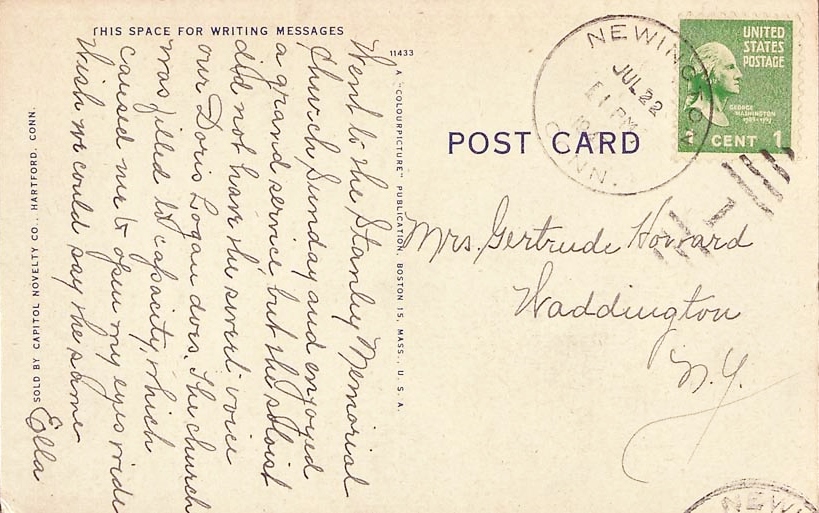 THIS SPACE FOR WRITING MESSAGES
Went to the Stanley Memorial
Church Sunday and enjoyed
a grand service but the soloist
did not have the sweet voice
our Doris Logan does. The church
was filled to capacity, which
caused me to open my eyes wide
Wish we could say the same
Ella
SOLD BY CAPITOL NOVELTY CO., HARTFORD, CONN.
11433
A "COLOURPICTURE" PUBLICATION, BOSTON 15, MASS., U. S. A.
POST CARD
NEWINGTON
JUL 22
1 PM
CONN.
UNITED
STATES
POSTAGE
GEORGE
WASHINGTON
1789-1797
1 CENT 1
Mrs. Gertrude Howard
Waddington
N.Y.
NEWI